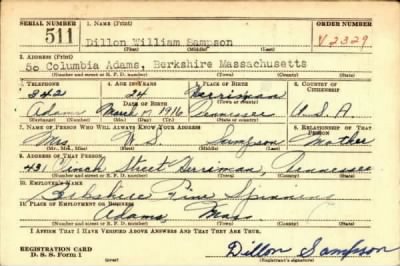 SERIAL NUMBER 1. NAME (Print) ORDER NUMBER
511 Dillon William Sampson V2329
2. ADDRESS (Print)
50 Columbia Adams, Berkshire Massachusetts
(Number and street or R. F. D. number) (Town) (County) (State)
3. TELEPHONE 4. AGE IN YEARS 5. PLACE OF BIRTH 6. COUNTRY OF CITIZENSHIP
842 24 Harriman
DATE OF BIRTH (Town or county)
Adams March 17 1916 Tennessee U.S.A.
(Exchange) (Number) (Mo.) (Day) (Yr.) (State or country)
7. NAME OF PERSON WHO WILL ALWAYS KNOW YOUR ADDRESS 8. RELATIONSHIP OF THAT PERSON
Mrs. S. Sampson Mother
(Mr., Mrs., Miss) (First) (Middle) (Last)
9. ADDRESS OF THAT PERSON
431 Street Harriman, Tennessee
(Number and street or R. F. D. number) (Town) (County) (State)
10. EMPLOYER'S NAME
Berkshire Fine Spinning
11. PLACE OF EMPLOYMENT OR BUSINESS
Adams, Mass
(Number and street or R. F. D. number) (Town) (County) (State)
I AFFIRM THAT I HAVE VERIFIED ABOVE ANSWERS AND THAT THEY ARE TRUE.
REGISTRATION CARD
D. S. S. Form 1 Dillon Sampson
(over) (Registrant's signature)